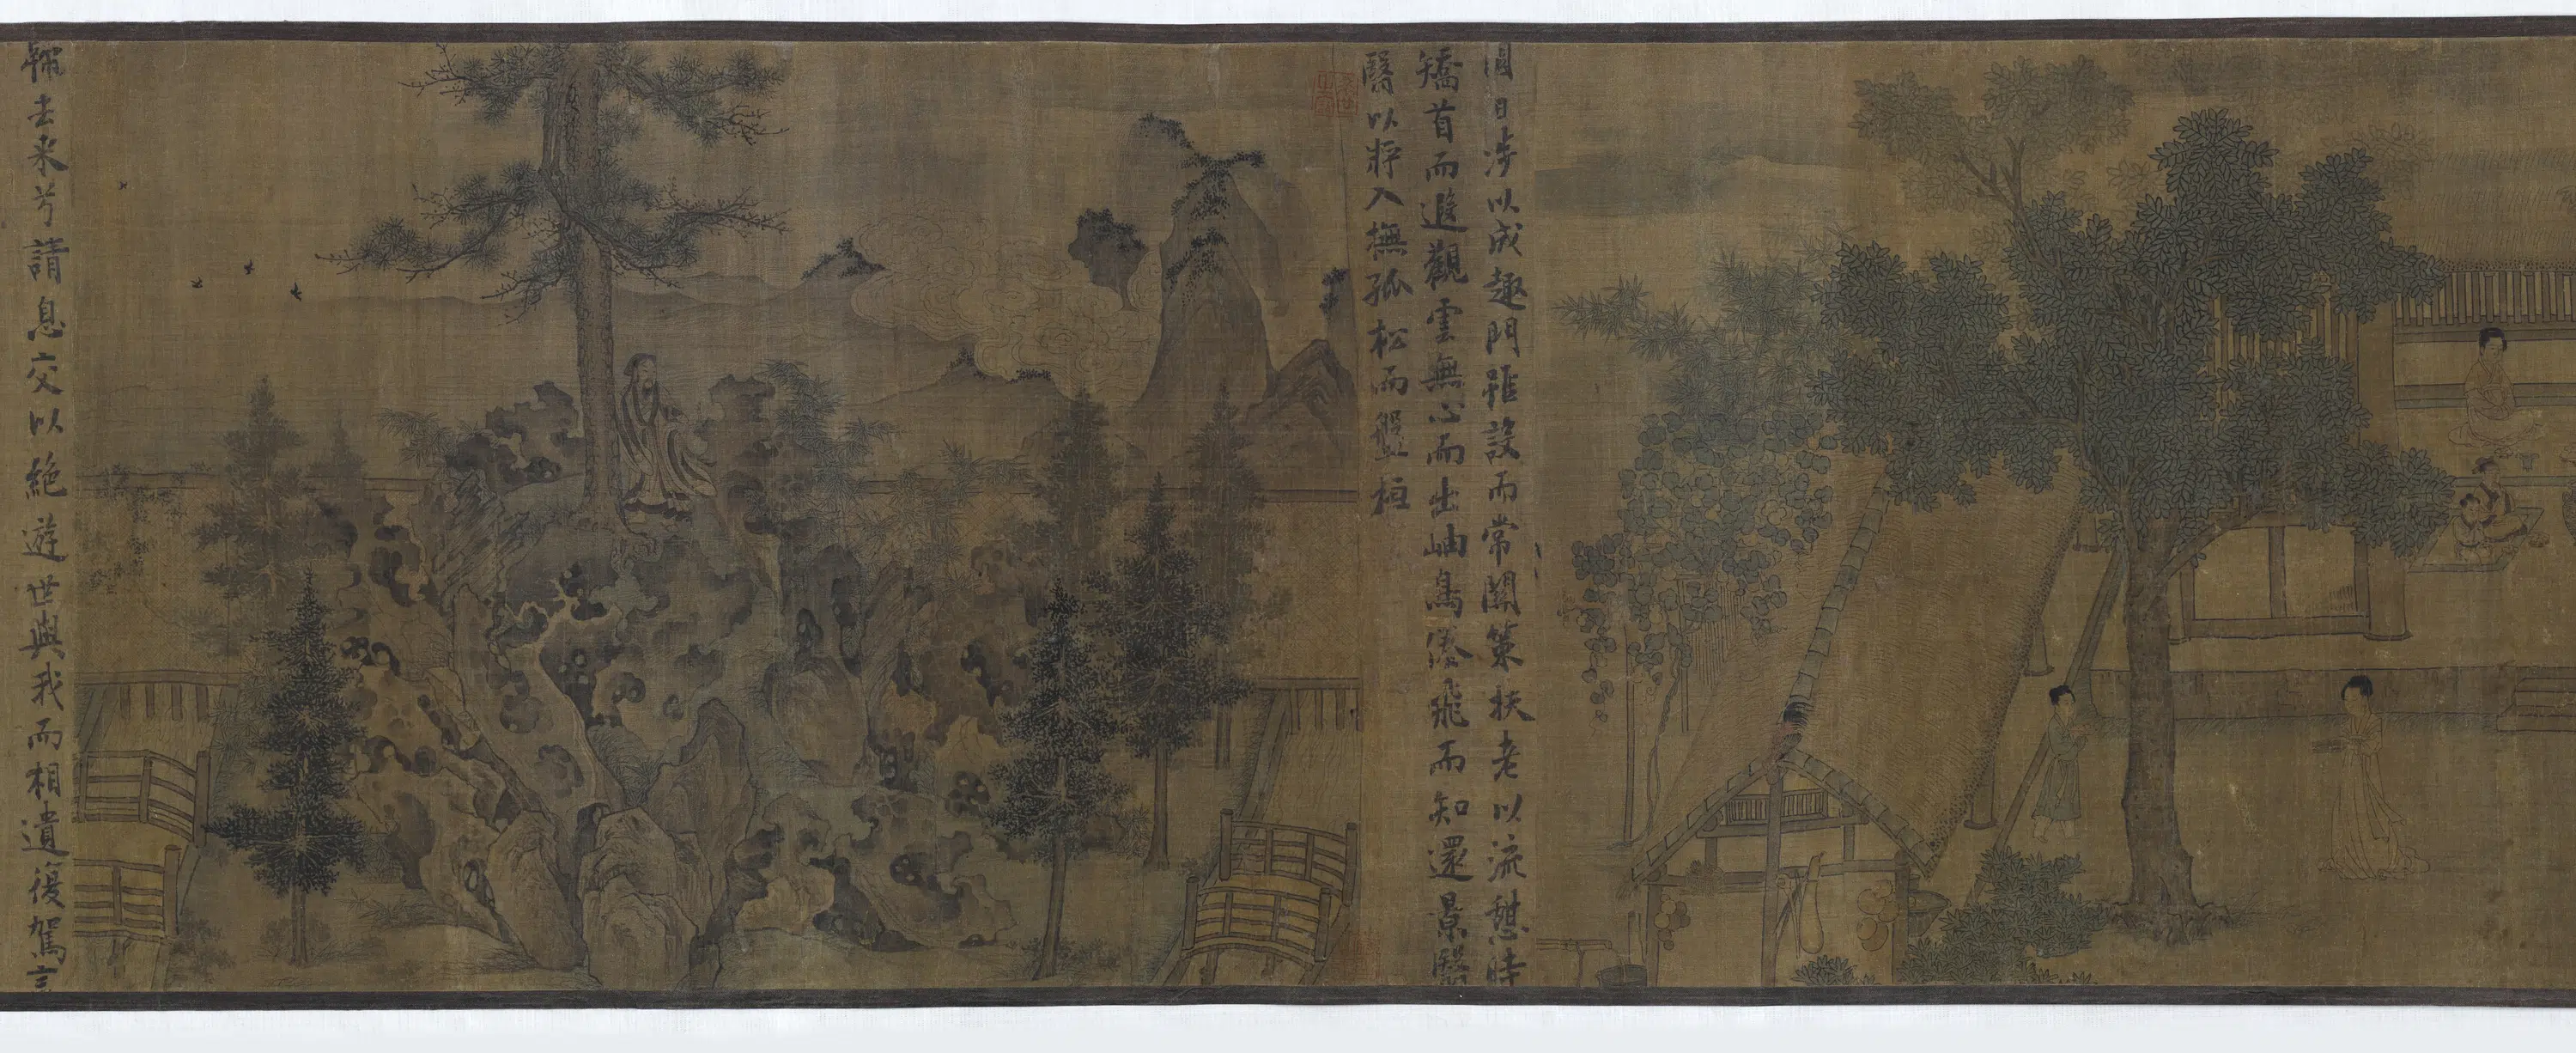 園日涉以成趣門雖設而常關策扶老以流憩時
矯首而遐觀雲無心而出岫鳥倦飛而知還景翳
翳以將入撫孤松而盤桓
歸去来兮請息交以絶遊世與我而相遺復駕言